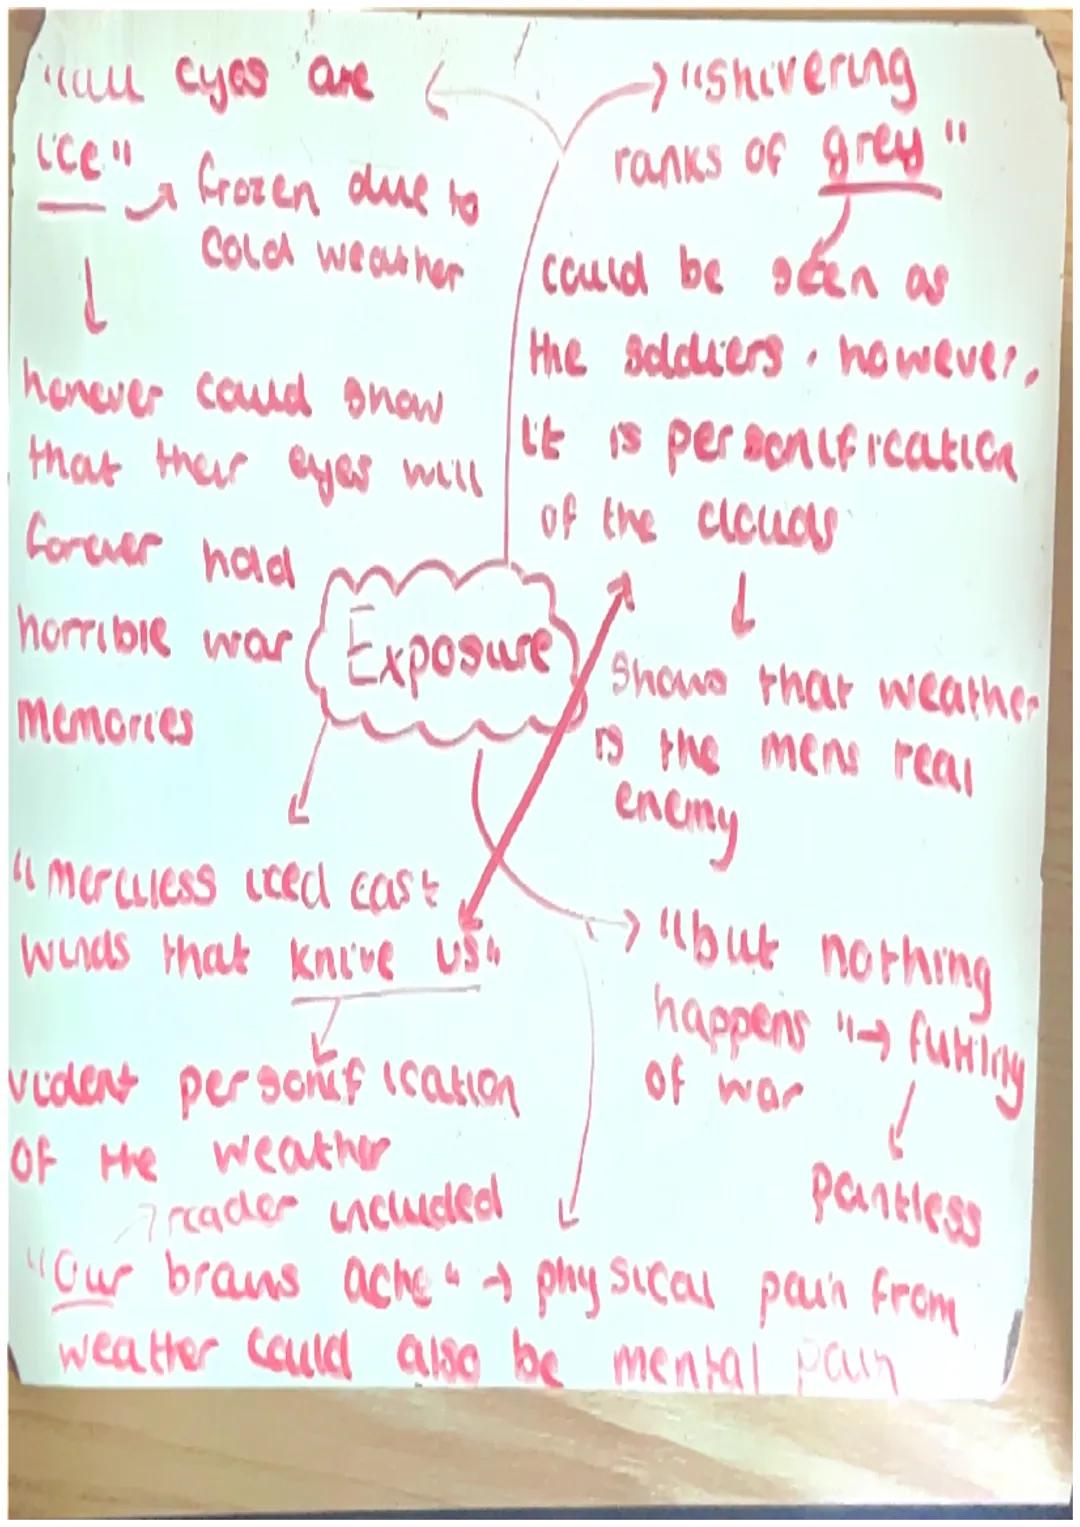 "all eyes are
ice"
frozen due to
cold weather
however could show
that their eyes will
forever hold
horrible war
memories
"shivering
ranks of grey"
could be seen as
the soldiers. however,
it is personification
of the clouds
shows that weather
is the mens real
enemy
Exposure
"merciless iced east
winds that knive us"
violent personification
of the weather
"but nothing
happens" → futility
of war
pointless
reader included
"Our brains ache" → physical pain from
weather could also be mental pain